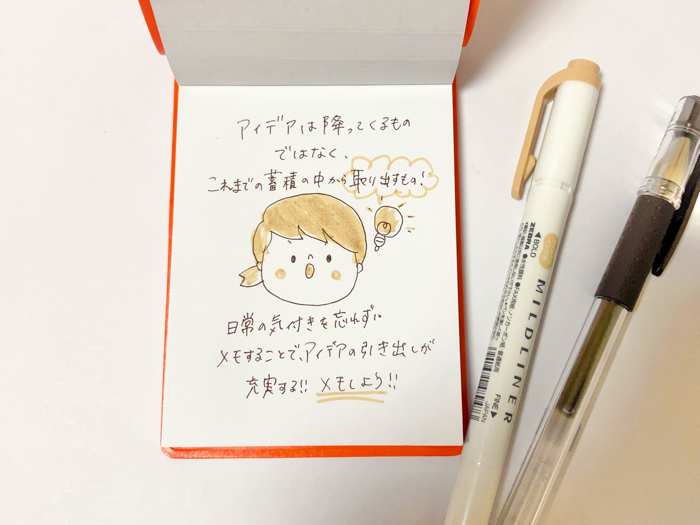 アイデアは降ってくるもの
ではなく、
これまでの蓄積の中から取り出すもの!
日常の気付きを忘れずに
メモすることで、アイデアの引き出しが
充実する!! メモしよう!!
◀BOLD
ZEBRA
MILDLINER
FINE▶
JAPAN